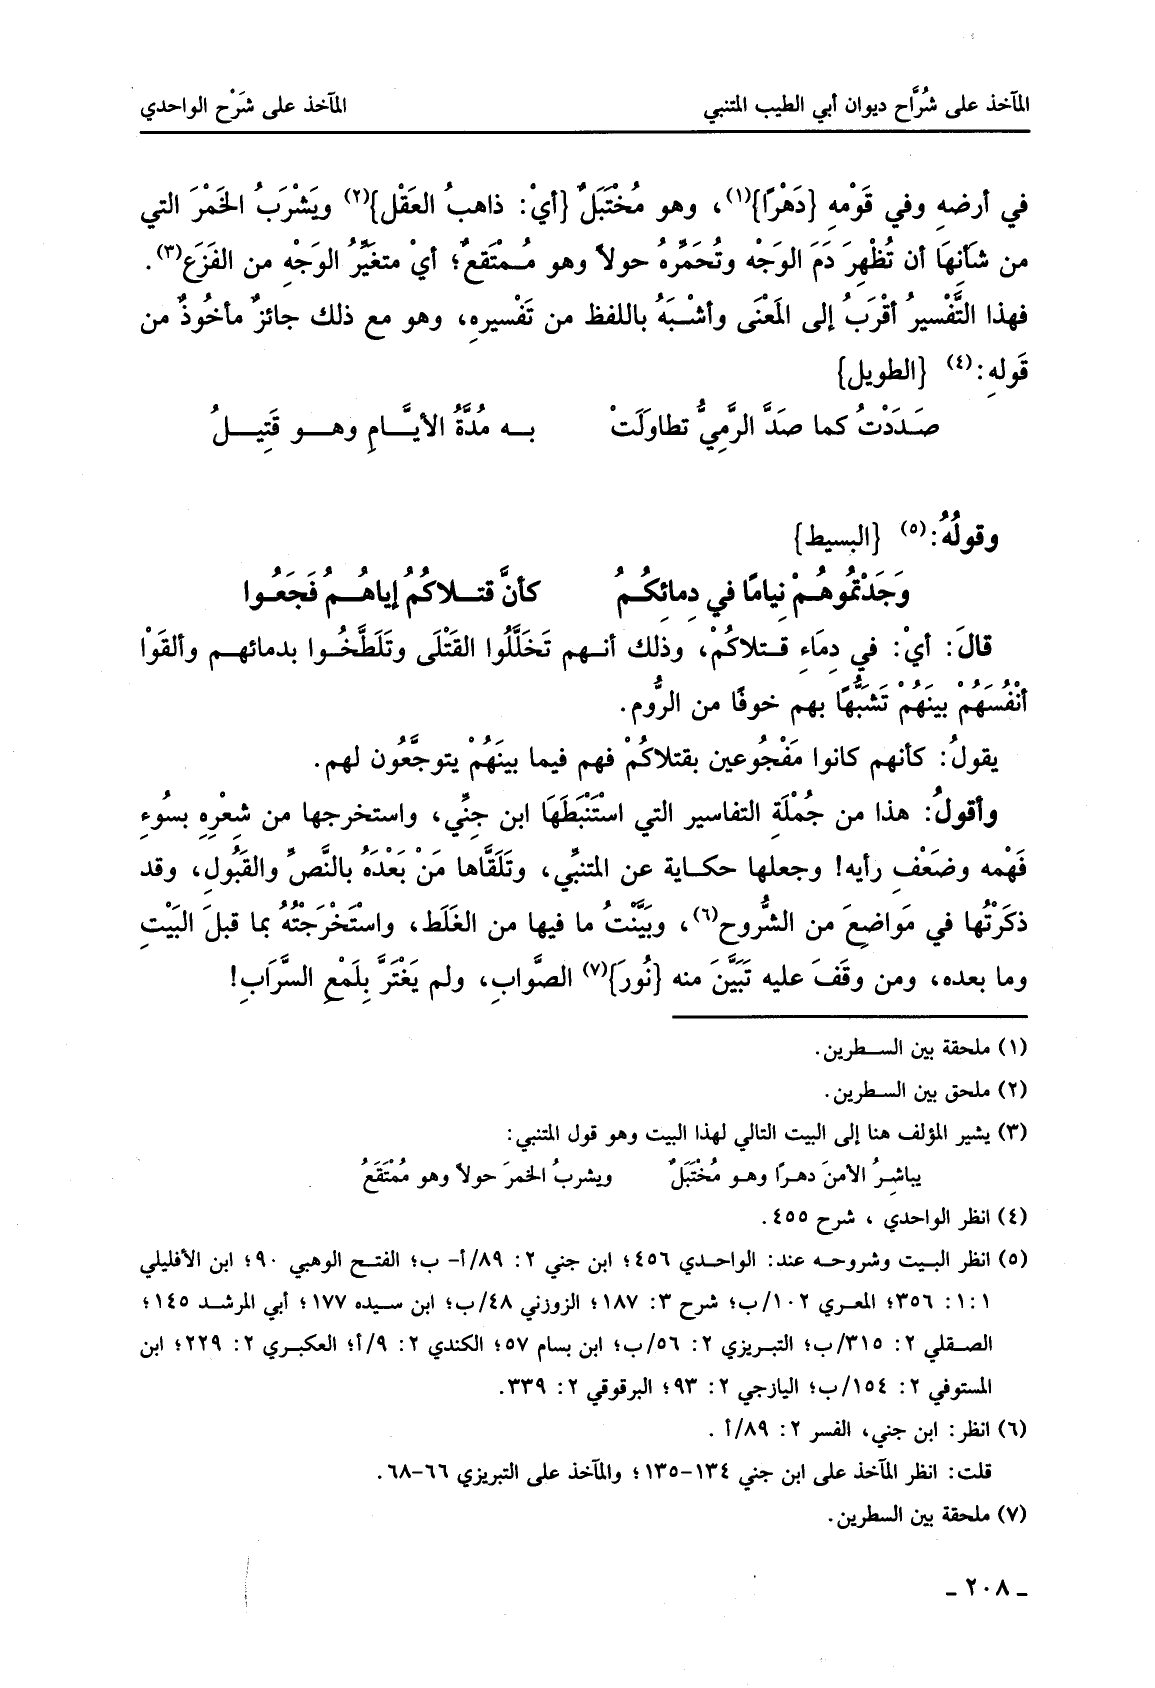 المآخذ على شُرَّاح ديوان أبي الطيب المتنبي المآخذ على شَرْح الواحدي
في أرضهِ وفي قَوْمهِ {دَهْرًا}(١)، وهو مُخْتَبَلٌ {أيْ: ذاهبُ العَقْل}(٢) ويَشْرَبُ الخَمْرَ التي
من شَأنِهَا أن تُظْهِرَ دَمَ الوَجْه وتُحَمِّرَهُ حولاً وهو مُـمْتَقعٌ؛ أيْ متغيِّرُ الوَجْهِ من الفَزَع(٣).
فهذا التَّفْسيرُ أقْرَبُ إلى المَعْنَى وأشْبَهُ باللفظ من تَفْسيرهِ، وهو مع ذلك جائزٌ مأخُوذٌ من
قَولهِ:(٤) {الطويل}
صَدَدْتُ كما صدَّ الرَّمِيُّ تطاولَتْ به مُدَّةُ الأيَّامِ وهو قَتِيلُ
وقولُهُ:(٥) {البسيط}
وَجَدْتُموهُمْ نِيامًا في دِمائِكُمُ كأنَّ قتلاكُمُ إياهُمُ فَجَعُوا
قالَ: أيْ: في دِمَاءِ قتلاكُمْ، وذلك أنهم تَخَلَّلُوا القَتْلَى وتَلَطَّخُوا بدمائهم وألقَوْا
أنْفُسَهُمْ بينَهُمْ تَشَبُّهًا بهم خوفًا من الرُّوم.
يقولُ: كأنهم كانوا مَفْجُوعين بقتلاكُمْ فهم فيما بينَهُمْ يتوجَّعُون لهم.
وأقولُ: هذا من جُمْلَةِ التفاسير التي اسْتَنْبَطَهَا ابن جِنِّي، واستخرجها من شِعْرِهِ بسُوءِ
فَهْمه وضَعْفِ رأيه! وجعلها حكاية عن المتنبِّي، وتَلَقَّاها مَنْ بَعْدَهُ بالنَّصِّ والقَبُولِ، وقد
ذكَرْتُها في مَواضِعَ من الشُّروح(٦)، وبَيَّنْتُ ما فيها من الغَلَط، واسْتَخْرَجتُهُ بما قبلَ البَيْتِ
وما بعده، ومن وقَفَ عليه تَبَيَّنَ منه {نُورَ}(٧) الصَّوابِ، ولم يَغْتَرَّ بِلَمْعِ السَّرَابِ!
(١) ملحقة بين السطرين.
(٢) ملحق بين السطرين.
(٣) يشير المؤلف هنا إلى البيت التالي لهذا البيت وهو قول المتنبي:
يباشِرُ الأمنَ دهرًا وهو مُخْتَبَلٌ ويشربُ الخمرَ حولاً وهو مُمْتَقَعُ
(٤) انظر الواحدي ، شرح ٤٥٥.
(٥) انظر البيت وشروحه عند: الواحدي ٤٥٦؛ ابن جني ٢: ٨٩/أ- ب؛ الفتح الوهبي ٩٠؛ ابن الأفليلي
١:١: ٣٥٦؛ المعري ١٠٢/ب؛ شرح ٣: ١٨٧؛ الزوزني ٤٨/ب؛ ابن سيده ١٧٧؛ أبي المرشد ١٤٥؛
الصقلي ٢: ٣١٥/ب؛ التبريزي ٢: ٥٦/ب؛ ابن بسام ٥٧؛ الكندي ٢: ٩/أ؛ العكبري ٢: ٢٢٩؛ ابن
المستوفي ٢: ١٥٤/ب؛ اليازجي ٢: ٩٣؛ البرقوقي ٢: ٣٣٩.
(٦) انظر: ابن جني، الفسر ٢: ٨٩/أ .
قلت: انظر المآخذ على ابن جني ١٣٤-١٣٥؛ والمآخذ على التبريزي ٦٦-٦٨.
(٧) ملحقة بين السطرين.
- ٢٠٨ -